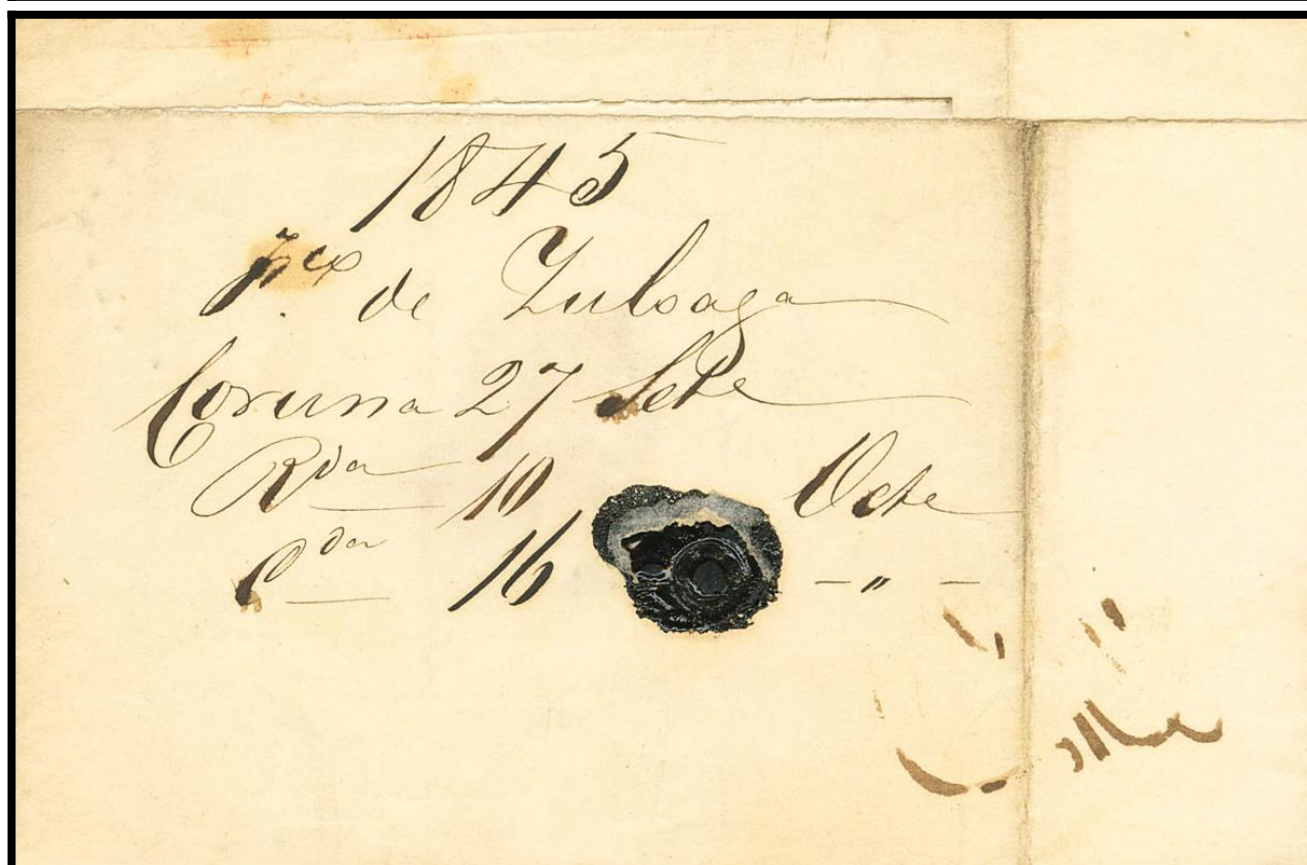 1845
de Zulsaga
Coruna 27 Sete
Rda 10 Octe
Cda 16 - " -